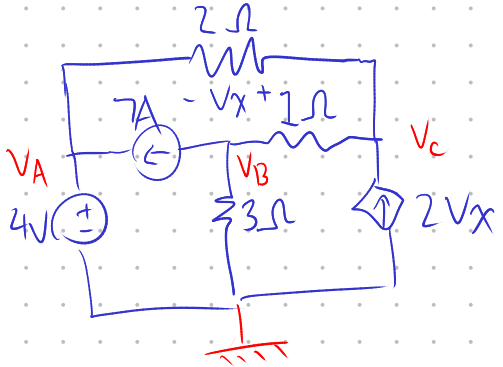 2 Ω
7A - Vx + 1Ω
VA VB Vc
4V + - 3Ω 2Vx